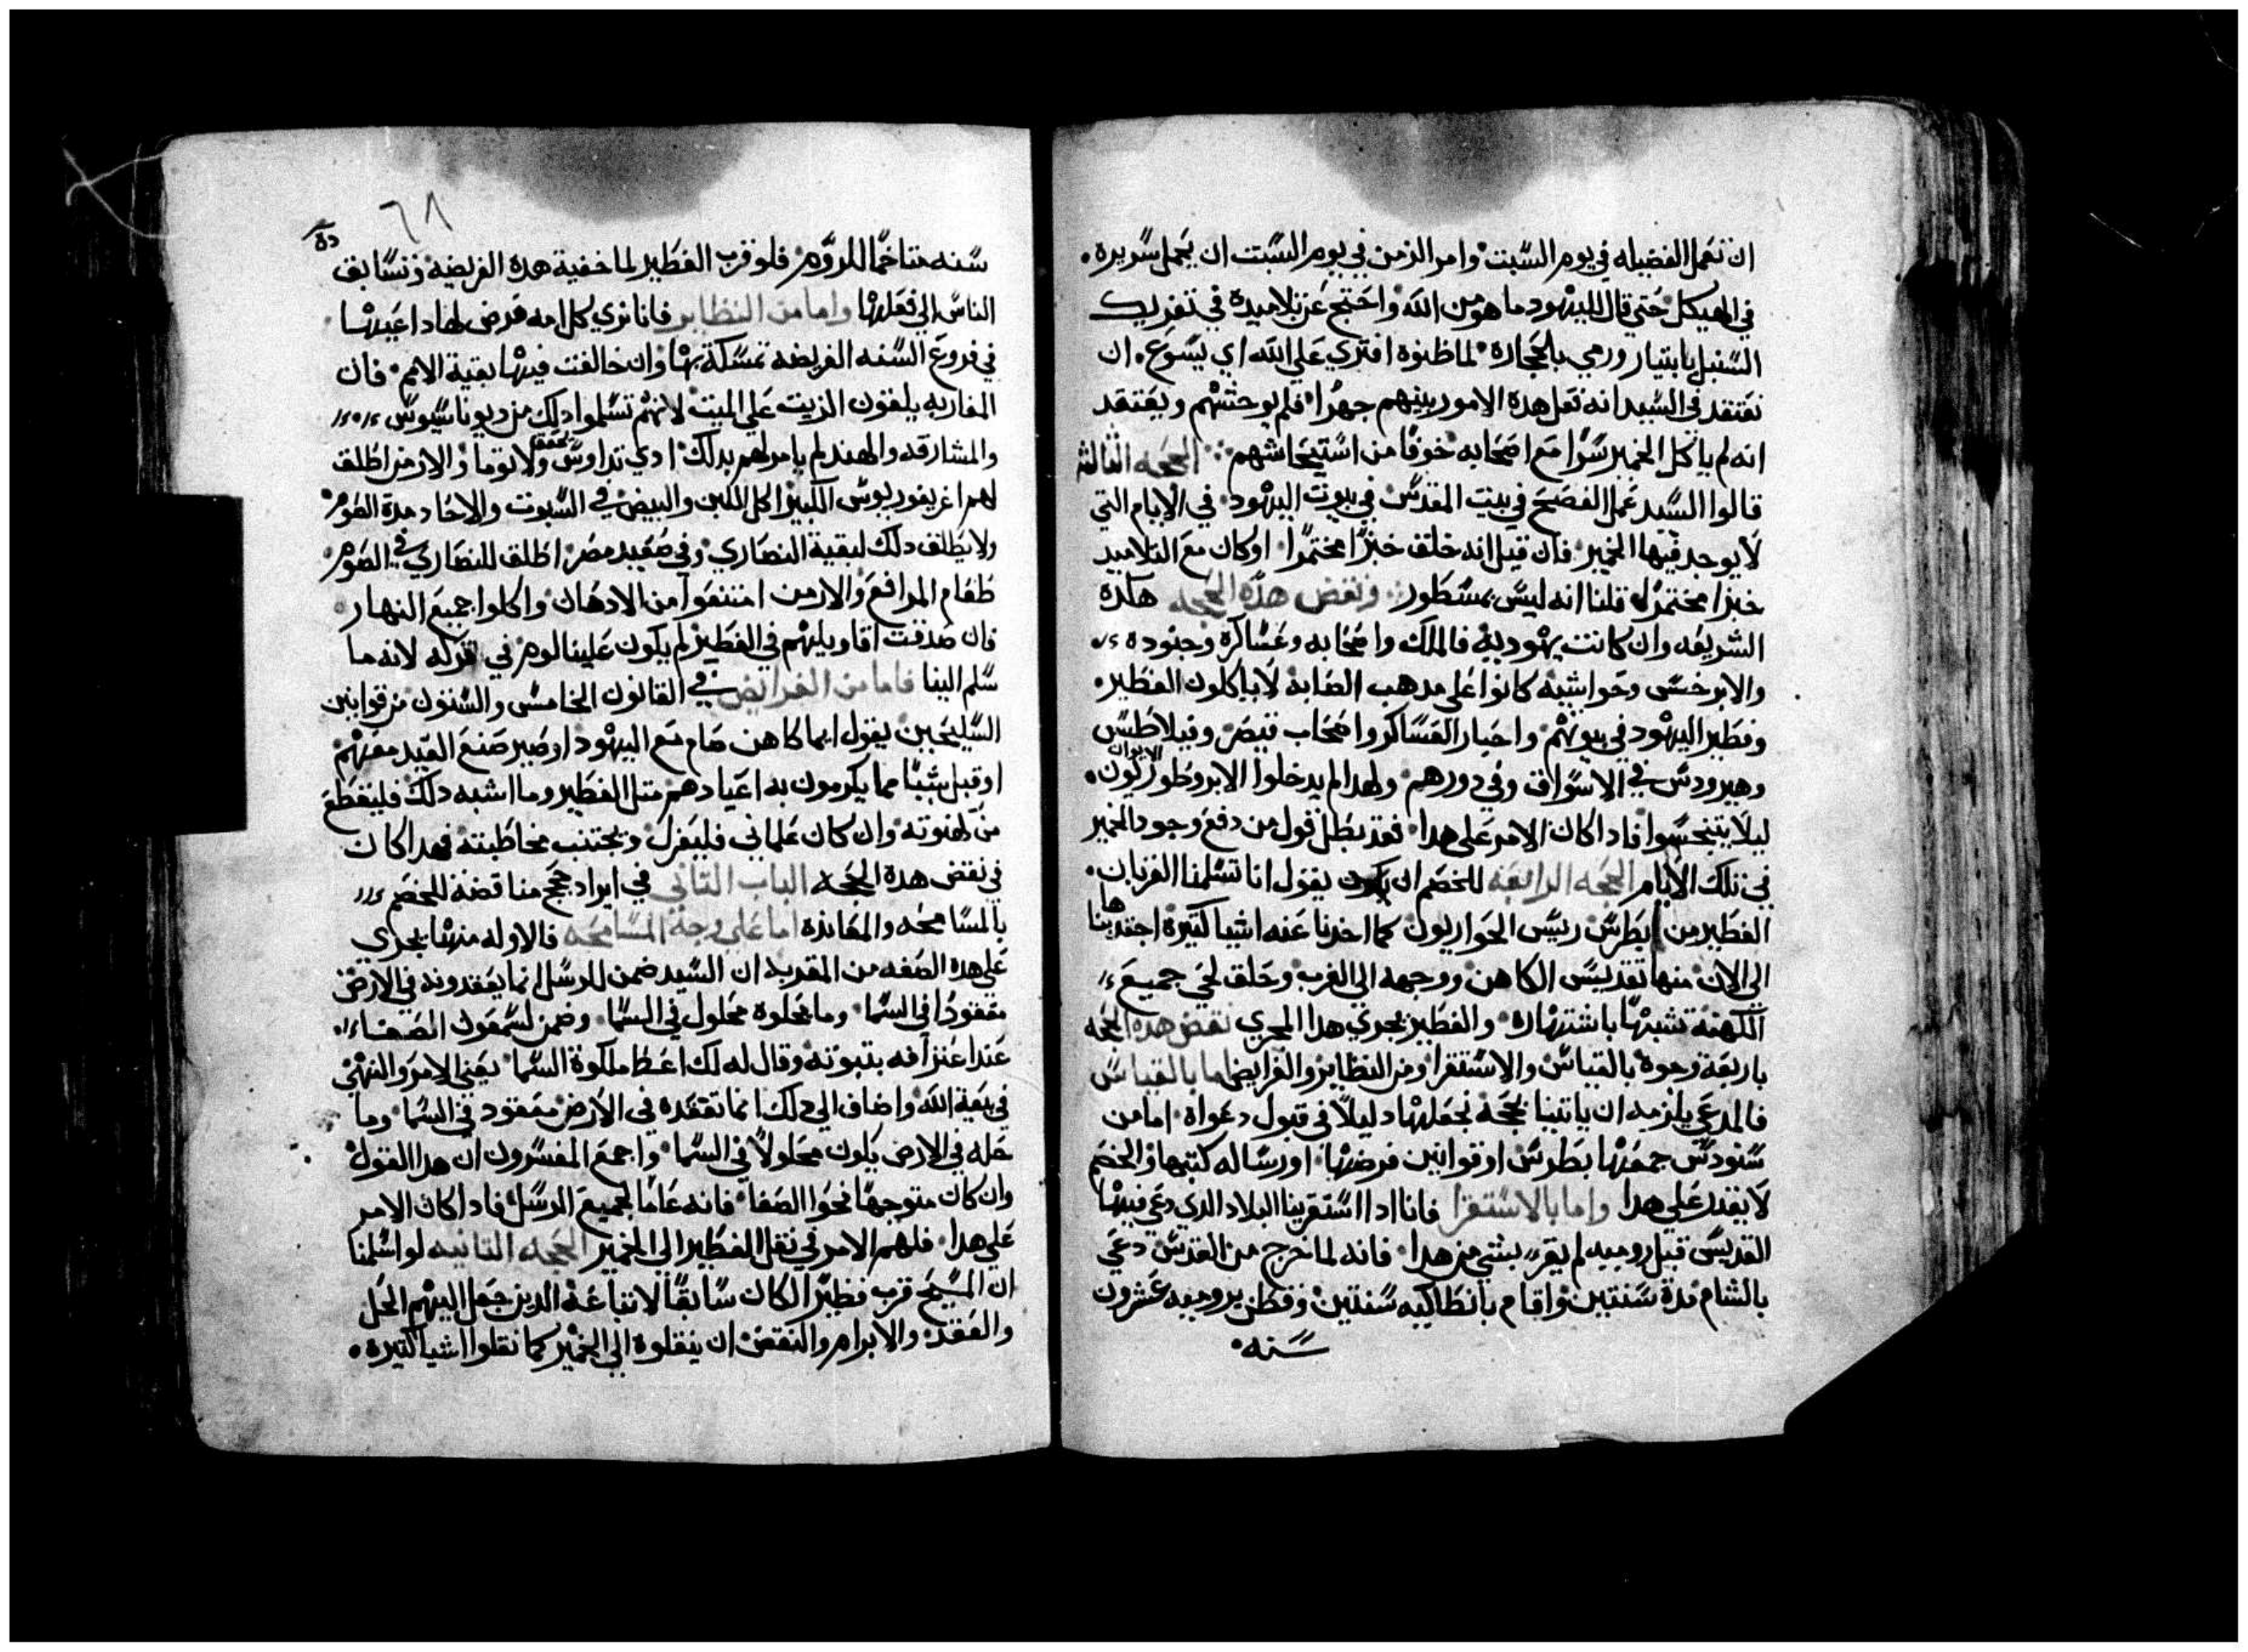 ان نعمل الفضيله في يوم السبت وامر الزمن في يوم السبت ان يحمل سريره
في الهيكل حتي قال لليهود ما هو من الله واحتج عن تلاميذه في تفريك
السنبل بابتيار ورمي بالحجاره لما ظنوه افتري علي الله اي يسوع ان
نعتقد في السيد انه فعل هده الامور بينهم جهرا فلم يوحشهم ويعتقد
انه لم ياكل الخمير سرا مع اصحابه خوفا من استيحاشهم الحجه الثالثه
قالوا السيد عمل الفصح في بيت المقدس في بيوت اليهود في الايام التي
لا يوجد فيها الخمير فان قيل انه خلق خبزا مختمرا اوكان مع التلاميد
خبزا مختمرا قلنا انه ليس بمسطور ونقض هده الحجه هكدة
الشريعه وان كانت يهودية فالملك واصحابه وعساكره وجنوده
والابرخسي وحواشيه كانوا علي مدهب الصابة لا ياكلون الفطير
وفطير اليهود في بيوتهم واحبار العساكر واصحاب قيصر وفيلاطس
وهيرودس في الاسواق وفي دورهم ولهدا لم يدخلوا الابروطوريون الايوان
ليلا يتنجسوا فادا كان الامر علي هدا فقد بطل قول من دفع وجود الخمير
في تلك الايام الحجه الرابعه للخصم ان يقول انا تسلمنا القربان
الفطير من بطرس رييس الحواريون كما اخدنا عنه اشيا كتيرة اجتديناها
الي الان منها تقديس الكاهن ووجهه الي الغرب وحلق لحي جميع
الكهنة تشبها باشتهاره والفطير يجري هدا المجري نقض هده الحجه
باربعة وجوة بالقياس والاستقرا ومن النظاير والفرايض اما بالقياس
فالمدعي يلزمه ان ياتينا بحجة نجعلها دليلا في قبول دعواة اما من
سنودس جمعها بطرس او قوانين فرضها او رساله كتبها والخصم
لا يقدر علي هدا واما بالاستقرا فانا ادا استقرينا البلاد الدي دعي فيها
القديس قبل روميه لم يقر بشي من هدا فانه لما خرج من القدس دعي
بالشام مدة سنتين واقام بانطاكيه سنتين وقطن بروميه عشرون
سنه
٦٨
سنه متاخما للروم فلو قرب الفطير لما خفية هده الفريضه وتسابق
الناس الي فعلها واما من النظاير فانا نري كل امه فرض لها داعيها
في فروع السنه الفريضه تمسكة بها وان خالفت فيها بقية الامم فان
المغاربه يلقون الزيت علي الميت لانهم تسلموا دلك من ديوناسيوس
والمشارقه والهند لم يامرلهم بدلك ادي تداوس ولا توما والارمن اطلق
لهم اغريغوريوس الكبير اكل اللبن والبيض في السبوت والاحاد مدة الصوم
ولا يطلق دلك لبقية النصاري وفي صعيد مصر اطلق للنصاري في الصوم
طعام المرافع والارمن امتنعوا من الادهان واكلوا جميع النهار
فان صدقت اقاويلهم في الفطير لم يكون علينا لوم في تركه لانه ما
سلم الينا فاما من الفرايض في القانون الخامس والستون من قوانين
السليحين يقول ايما كاهن صام مع اليهود او صير صنع العيد معهم
او قبل شيا مما يكرمون به اعيادهم متل الفطير وما اشبه دلك فليقطع
من كهنوته وان كان علماني فليفرل وتجتنب مخاطبته فهدا كان
في نقض هدة الحجه الباب التاني في ايراد حجج مناقضة للخصم
بالمسامحه والمعانده اما علي وجهة المسامحه فالاوله منها يجري
علي هده الصفه من المقدمة ان السيد ضمن للرسل انما يعقدونه في الارض
معقودا في السما وما يحلوة محلول في السما وضمن لسمعون الصفا
عند اعترافه ببنوته وقال له لك اعط ملكوة السما يعني الامر والنهي
في بيعة الله واضاف الي دلك انما تعقده في الارض معقود في السما وما
حله في الارض يكون محلولا في السما واجمع المفسرون ان هدا القول
وان كان متوجها نحو الصفا فانه عاما لجميع الرسل فادا كان الامر
علي هدا فلهم الامر في نقل الفطير الي الخمير الحجه التانيه لو اسلمنا
ان المسيح قرب فطيرا لكان سابقا لاتباعة الدين جعل اليهم الحل
والعقد والابرام والنقض ان ينقلوة الي الخمير كما نقلوا اشيا كتيره